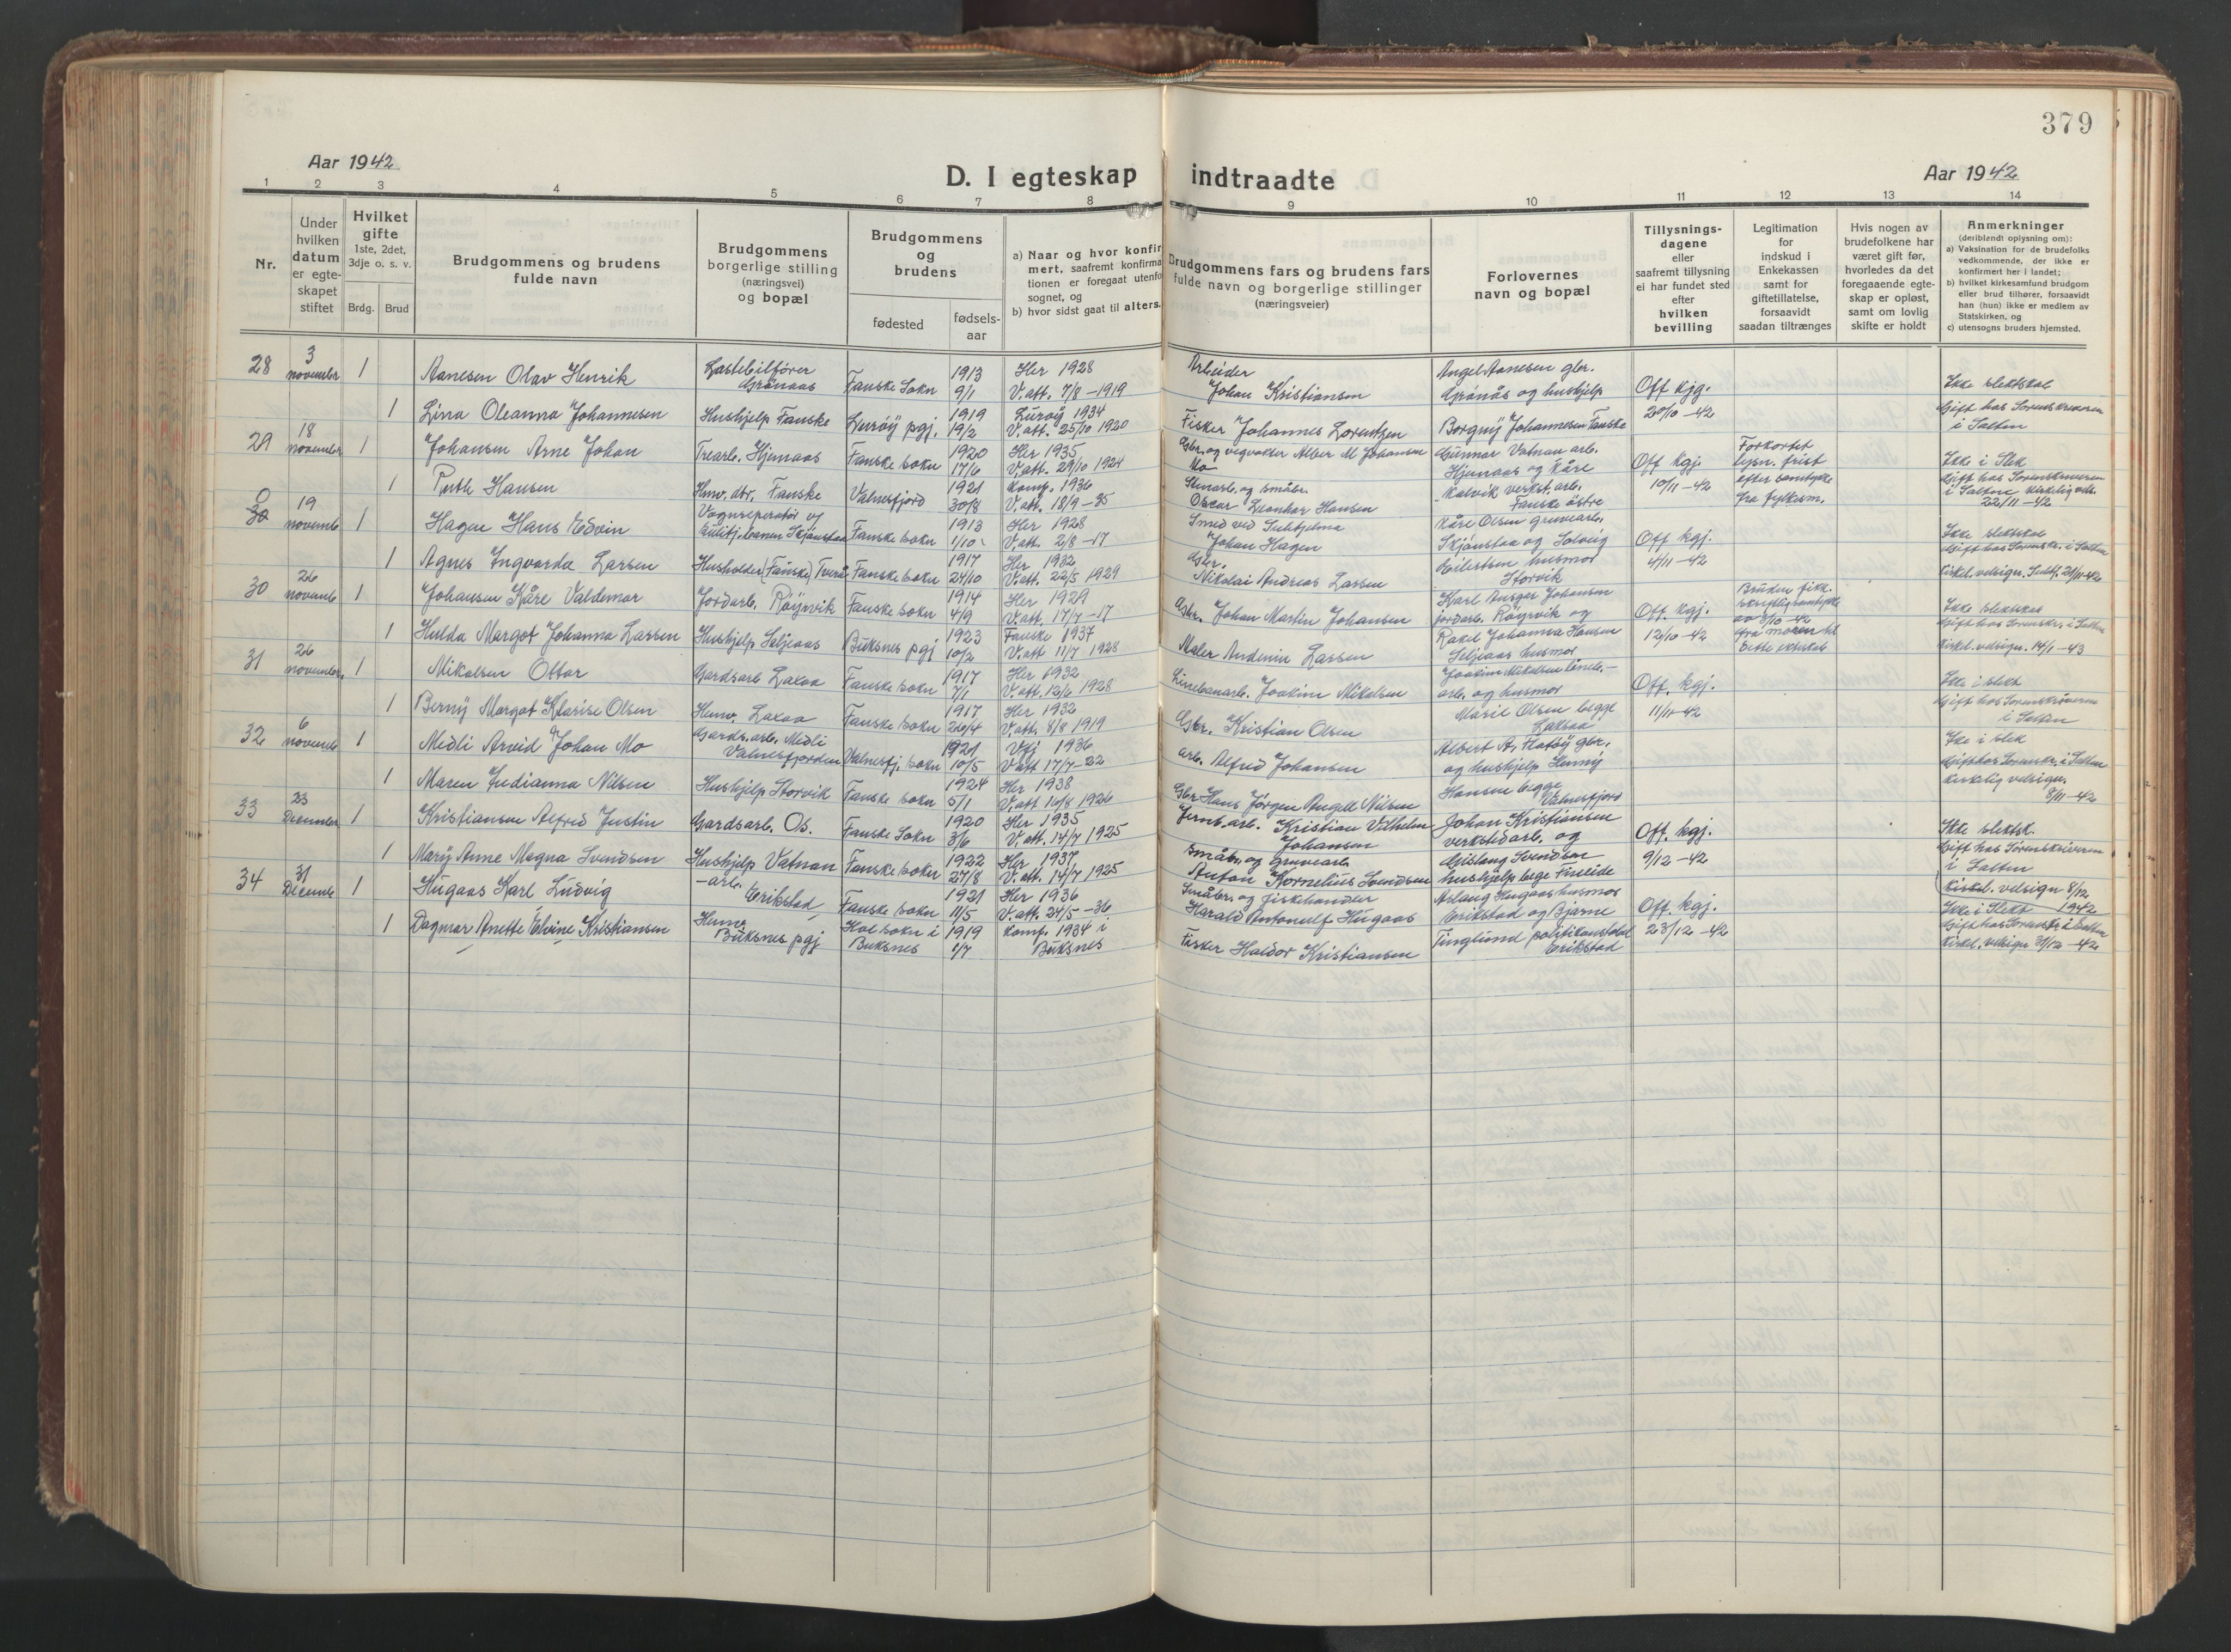 379
Aar 1942
D. I egteskap indtraadte
Aar 1942
1 2 3 4 5 6 7 8 9 10 11 12 13 14
Nr.
Under
hvilken
datum
er egte-
skapet
stiftet
Hvilket
gifte
1ste, 2det,
3dje o. s. v.
Brdg. Brud
Brudgommens og brudens
fulde navn
Brudgommens
borgerlige stilling
(næringsvei)
og bopæl
Brudgommens
og
brudens
fødested
fødsels-
aar
a) Naar og hvor konfir
mert, saafremt konfirma
tionen er foregaat utenfo
sognet, og
b) hvor sidst gaat til alters.
Brudgommens fars og brudens fars
fulde navn og borgerlige stillinger
(næringsveier)
Forlovernes
navn og bopæl
Tillysnings-
dagene
eller
saafremt tillysning
ei har fundet sted
efter
hvilken
bevilling
Legitimation
for
indskud i
Enkekassen
samt for
giftetillatelse,
forsaavidt
saadan tiltrænges
Hvis nogen av
brudefolkene har
været gift før,
hvorledes da det
foregaaende egte-
skap er opløst,
samt om lovlig
skifte er holdt
Anmerkninger
(deriblendt oplysning om):
a) Vaksination for de brudefolks
vedkommende, der ikke er
konfirmert her i landet;
b) hvilket kirkesamfund brudgom
eller brud tilhører, forsaavidt
han (hun) ikke er medlem av
Statskirken, og
c) utensogns bruders hjemsted.
28
3
november
1
Aanesen Olav Henrik
Lastebilfører
Grönaas
Fauske Sokn
1913
9/1
Her 1928
V. att. 7/8 - 1919
Arbeider
Johan Kristiansen
Angel Aanesen gbr.
Grönås og hushjelp
Off kgj.
20/10 - 42
Ikke slektskal
1
Lina Oleanna Johannesen
Hushjelp Fauske
Luröy pgj.
1919
19/2
Luröy 1934
V. att. 25/10 1920
Fisker Johannes Lorentzen
Borgny Johannesen Fauske
Gift hos Sorenskriveren
i Salten
29
18
november
1
Johansen Arne Johan
Trearb. Hjemaas
Fauske sokn
1920
17/6
Her 1935
V. att. 29/10 1924
Gbr. og vegvokter Alber M Johansen
Mo
Gunnar Vatnan arb.
Hjemaas og Kåre
Off kgj.
10/11 - 42
Forkortet
lysn. frist
efter samtykke
fra fylkesm.
Ikke i Slek
1
Ruth Hansen
Hmv. dtr. Fauske
Valnesfjord
1921
30/8
Komf. 1936
V. att. 18/9 - 35
Stenarb. og småbr.
Oscar Leonhar Hansen
Kalvik verkst. arb.
Fauske östre
Gift hos Sorenskriveren
i Salten kirkelig vels.
22/11 - 42
0
30
19
novembe
1
Hagen Hans Edvin
Vognreperatör v/
Sulitj. banen Skjönstaa
Fauske sokn
1913
1/10
Her 1928
V. att. 2/8 - 17
Smed ved Sulitjelma
Johan Hagen
Kåre Olsen gruvearb.
Skjönstaa og Solveig
Off kgj.
4/11 - 42
Ikke slektskal
1
Agnes Ingvarda Larsen
Husholder (Fauske) Tverå
Fauske sokn
1917
24/10
Her 1932
V. att. 22/5 1929
Gbr.
Nikolai Andreas Larsen
Eilertsen husmor
Storvik
Gift hos Sorenskr. i Salten
Kirkel. velsign. Sulitj. 21/11-42
30
26
novembe
1
Johansen Kåre Valdemar
Jordarb. Röyrvik
Fauske sokn
1914
4/9
Her 1929
V. att. 17/7 - 17
Gbr. Johan Martin Johansen
Karl Ansgar Johansen
jordarb. Röyrvik og
Off. kgj.
12/10 - 42
Bruden fikk
skriftlig samtykke
av 8/10 - 42
fra moren til
dette ekteskab
Ikke slektskal
1
Hulda Margot Johanna Larsen
Hushjelp Seljeaas
Buksnes pgj
1923
10/2
Fauske 1937
V. att 11/7 1928
Maler Andenin Larsen
Rakel Johanna Hansen
Seljeaas husmor
Gift hos Sorenskr. i Salten
Kirkel. velsign. 14/1 - 43
31
26
november
1
Mikalsen Ottar
Gardsarb Laxaa
Fauske sokn
1917
7/1
Her 1932
V. att. 12/6 1928
Linebanarb. Joakim Mikalsen
Joakim Mikalsen lineb.-
arb. og husmor
Off. kgj.
11/11-42
Ikke i slekt
1
Berny Margot Klarise Olsen
Hmv. Laxaa
Fauske sokn
1917
26/4
Her 1932
V. att. 8/8 1919
Gbr. Kristian Olsen
Marie Olsen begge
Laksaa
Gift hos Sorenskriveren
i Salten
32
6
novemb
1
Medli Arvid Johan Mo
Gards. arb. Medli
Valnesfjorden
Valnesfj. sokn
1921
10/5
Vfj 1936
V att 17/7 - 22
arb. Alfred Johansen
Albert A. Flatöy gbr.
og hushjelp Henny
Ikke i slek
1
Maren Indianna Nilsen
Hushjelp Storvik
Fauske sokn
1924
5/1
Her 1938
V. att 16/8 1926
Gbr Hans Jörgen Angell Nilsen
Hansen begge
Valnesfjord
Gift hos Sorenskr. i Salten
Kirkelig velsign.
8/11 - 42
33
23
December
1
Kristiansen Alfred Justin
Gardsarb. Os.
Fauske Sokn
1920
3/6
Her 1935
V. att. 14/7 1925
Jernb. arb. Kristian Vilhelm
Johansen
Johan Kristiansen
verkstedarb. og
Off. kgj.
9/12 - 42
Ikke slektsk.
1
Mary Anne Magna Svendsen
Hushjelp Vatnan
Fauske sokn
1922
27/8
Her 1937
V. att. 14/7 1925
Småbr. og gruvearb.
Anton Kornelius Svendsen
Gislaug Svendsen
hushjelp bege Finneide
Gift hos Sörenskriveren
i Salten
Kirkel. velsign 8/12
1942
34
31
Decembe
1
Hugaas Karl Ludvig
-arb.
Erikstad
Fauske sokn
1921
11/5
Her 1936
V. att. 24/5 - 36
Småbr. og fiskhandler
Harald Antonulf Hugaas
Aslaug Hugaas husmor
Erikstad og Bjarne
Off. kgj.
23/12 - 42
Ikke i Slekt
1
Dagmar Anette Elvine Kristiansen
Hmv.
Buksnes pgj
Hol sokn i
Buksnes
1919
1/7
Komf. 1934 i
Buksnes
Fisker Haldor Kristiansen
Tinglund politikonstabel
Erikstad
Gift hos Sorenskr i Salten
Kirkel. velsign 31/12 - 42